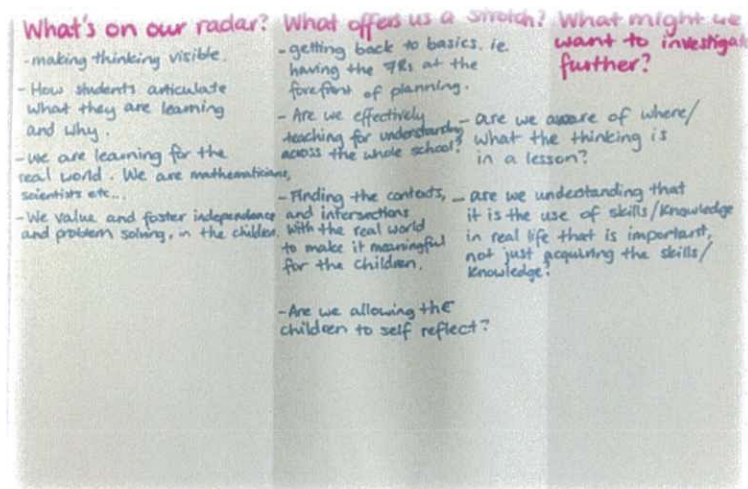 What's on our radar?
-making thinking visible.
-How students articulate
what they are learning
and why.
-we are learning for the
real world. We are mathematicians,
scientists etc...
-We value and foster independence
and problem solving, in the children.
What offers us a stretch?
-getting back to basics. ie.
having the 7Rs at the
forefront of planning.
-Are we effectively
teaching for understanding
across the whole school?
-Finding the contexts,
and intersections
with the real world
to make it meaningful
for the children.
-Are we allowing the
children to self reflect?
What might we
want to investigat
further?
-are we aware of where/
what the thinking is
in a lesson?
-are we understanding that
it is the use of skills/knowledge
in real life that is important,
not just acquiring the skills/
knowledge?